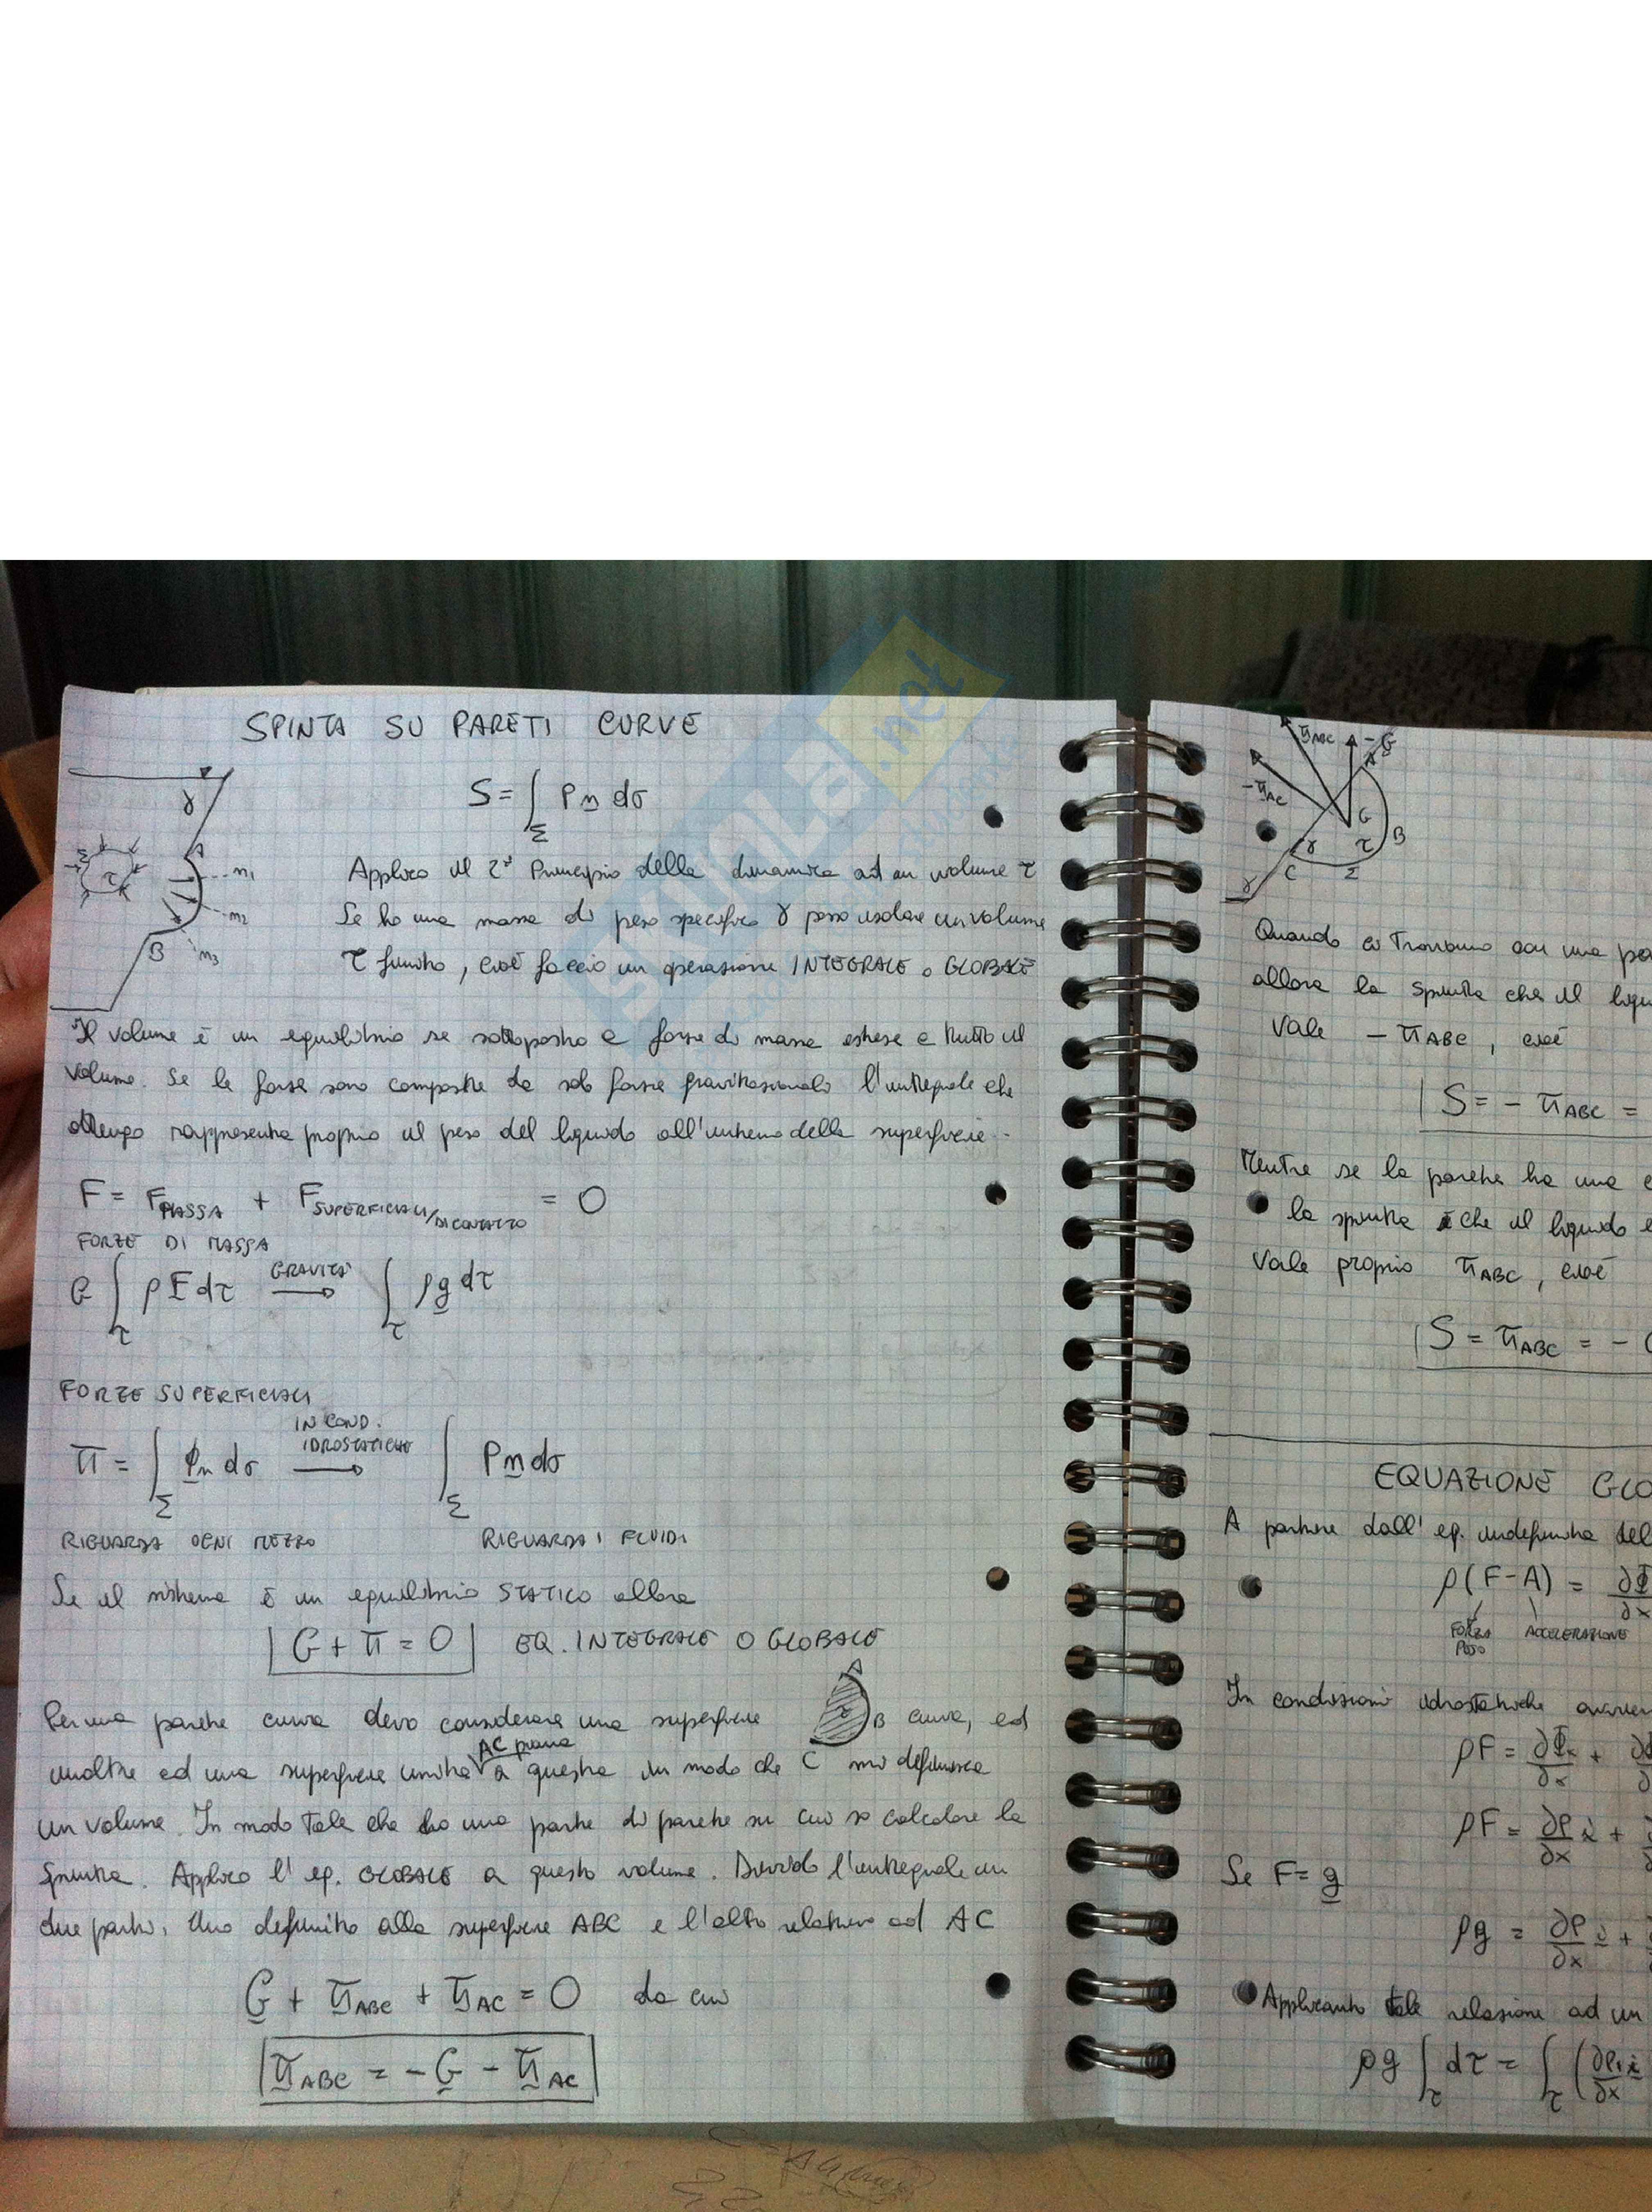 SPINTA SU PARETI CURVE
γ
S = ∫_Σ P n dσ
A
n1
n2
n3
B
Σ
τ
Applico il 2° Principio della dinamica ad un volume τ
Se ho una massa di peso specifico γ posso isolare un volume
τ finito, cioè faccio un operazione INTEGRALE o GLOBALE
Il volume è in equilibrio se sottoposto a forze di massa estese a tutto il
volume. Se le forze sono composte da sole forze gravitazionali l'integrale che
ottengo rappresenta proprio il peso del liquido all'interno della superficie.
F = F_MASSA + F_SUPERFICIALI/DI CONTATTO = 0
FORZE DI MASSA
G ∫_τ ρ F dτ GRAVITÀ → ∫_τ ρ g dτ
FORZE SUPERFICIALI
π = ∫_Σ Φn dσ IN COND. IDROSTATICHE → ∫_Σ P n dσ
RIGUARDA OGNI MEZZO RIGUARDA I FLUIDI
Se il sistema è in equilibrio STATICO allora
G + π = 0 EQ. INTEGRALE O GLOBALE
Per una parete curva devo considerare una superficie A B C curva, ed
inoltre ad una superficie unita AC piana a questa in modo che mi definisca
un volume. In modo tale che ho una parte di parete su cui so calcolare la
spinta. Applico l'eq. GLOBALE a questo volume. Divido l'integrale in
due parti, uno definito alla superficie ABC e l'altro relativo ad AC
G + π_ABC + π_AC = 0 da cui
π_ABC = - G - π_AC
π_ABC
-G
-π_AC
A
G
B
γ
τ
C
Σ
γ
Quando ci troviamo con una
allora la spinta che il
vale - π_ABC, cioè
S = - π_ABC =
Mentre se la parete ha una
la spinta che il liquido
vale proprio π_ABC, cioè
S = π_ABC = -
EQUAZIONE GLO
A partire dall'eq. indefinita del
ρ(F-A) = ∂Φ / ∂x
FORZA PESO ACCELERAZIONE
In condizioni idrostatiche
ρF = ∂Φx / ∂x +
ρF = ∂P / ∂x i +
Se F = g
ρg = ∂P / ∂x i +
Applicando tale relazione ad un
ρg ∫_τ dτ = ∫_τ (∂P / ∂x i
SKUOLA.net